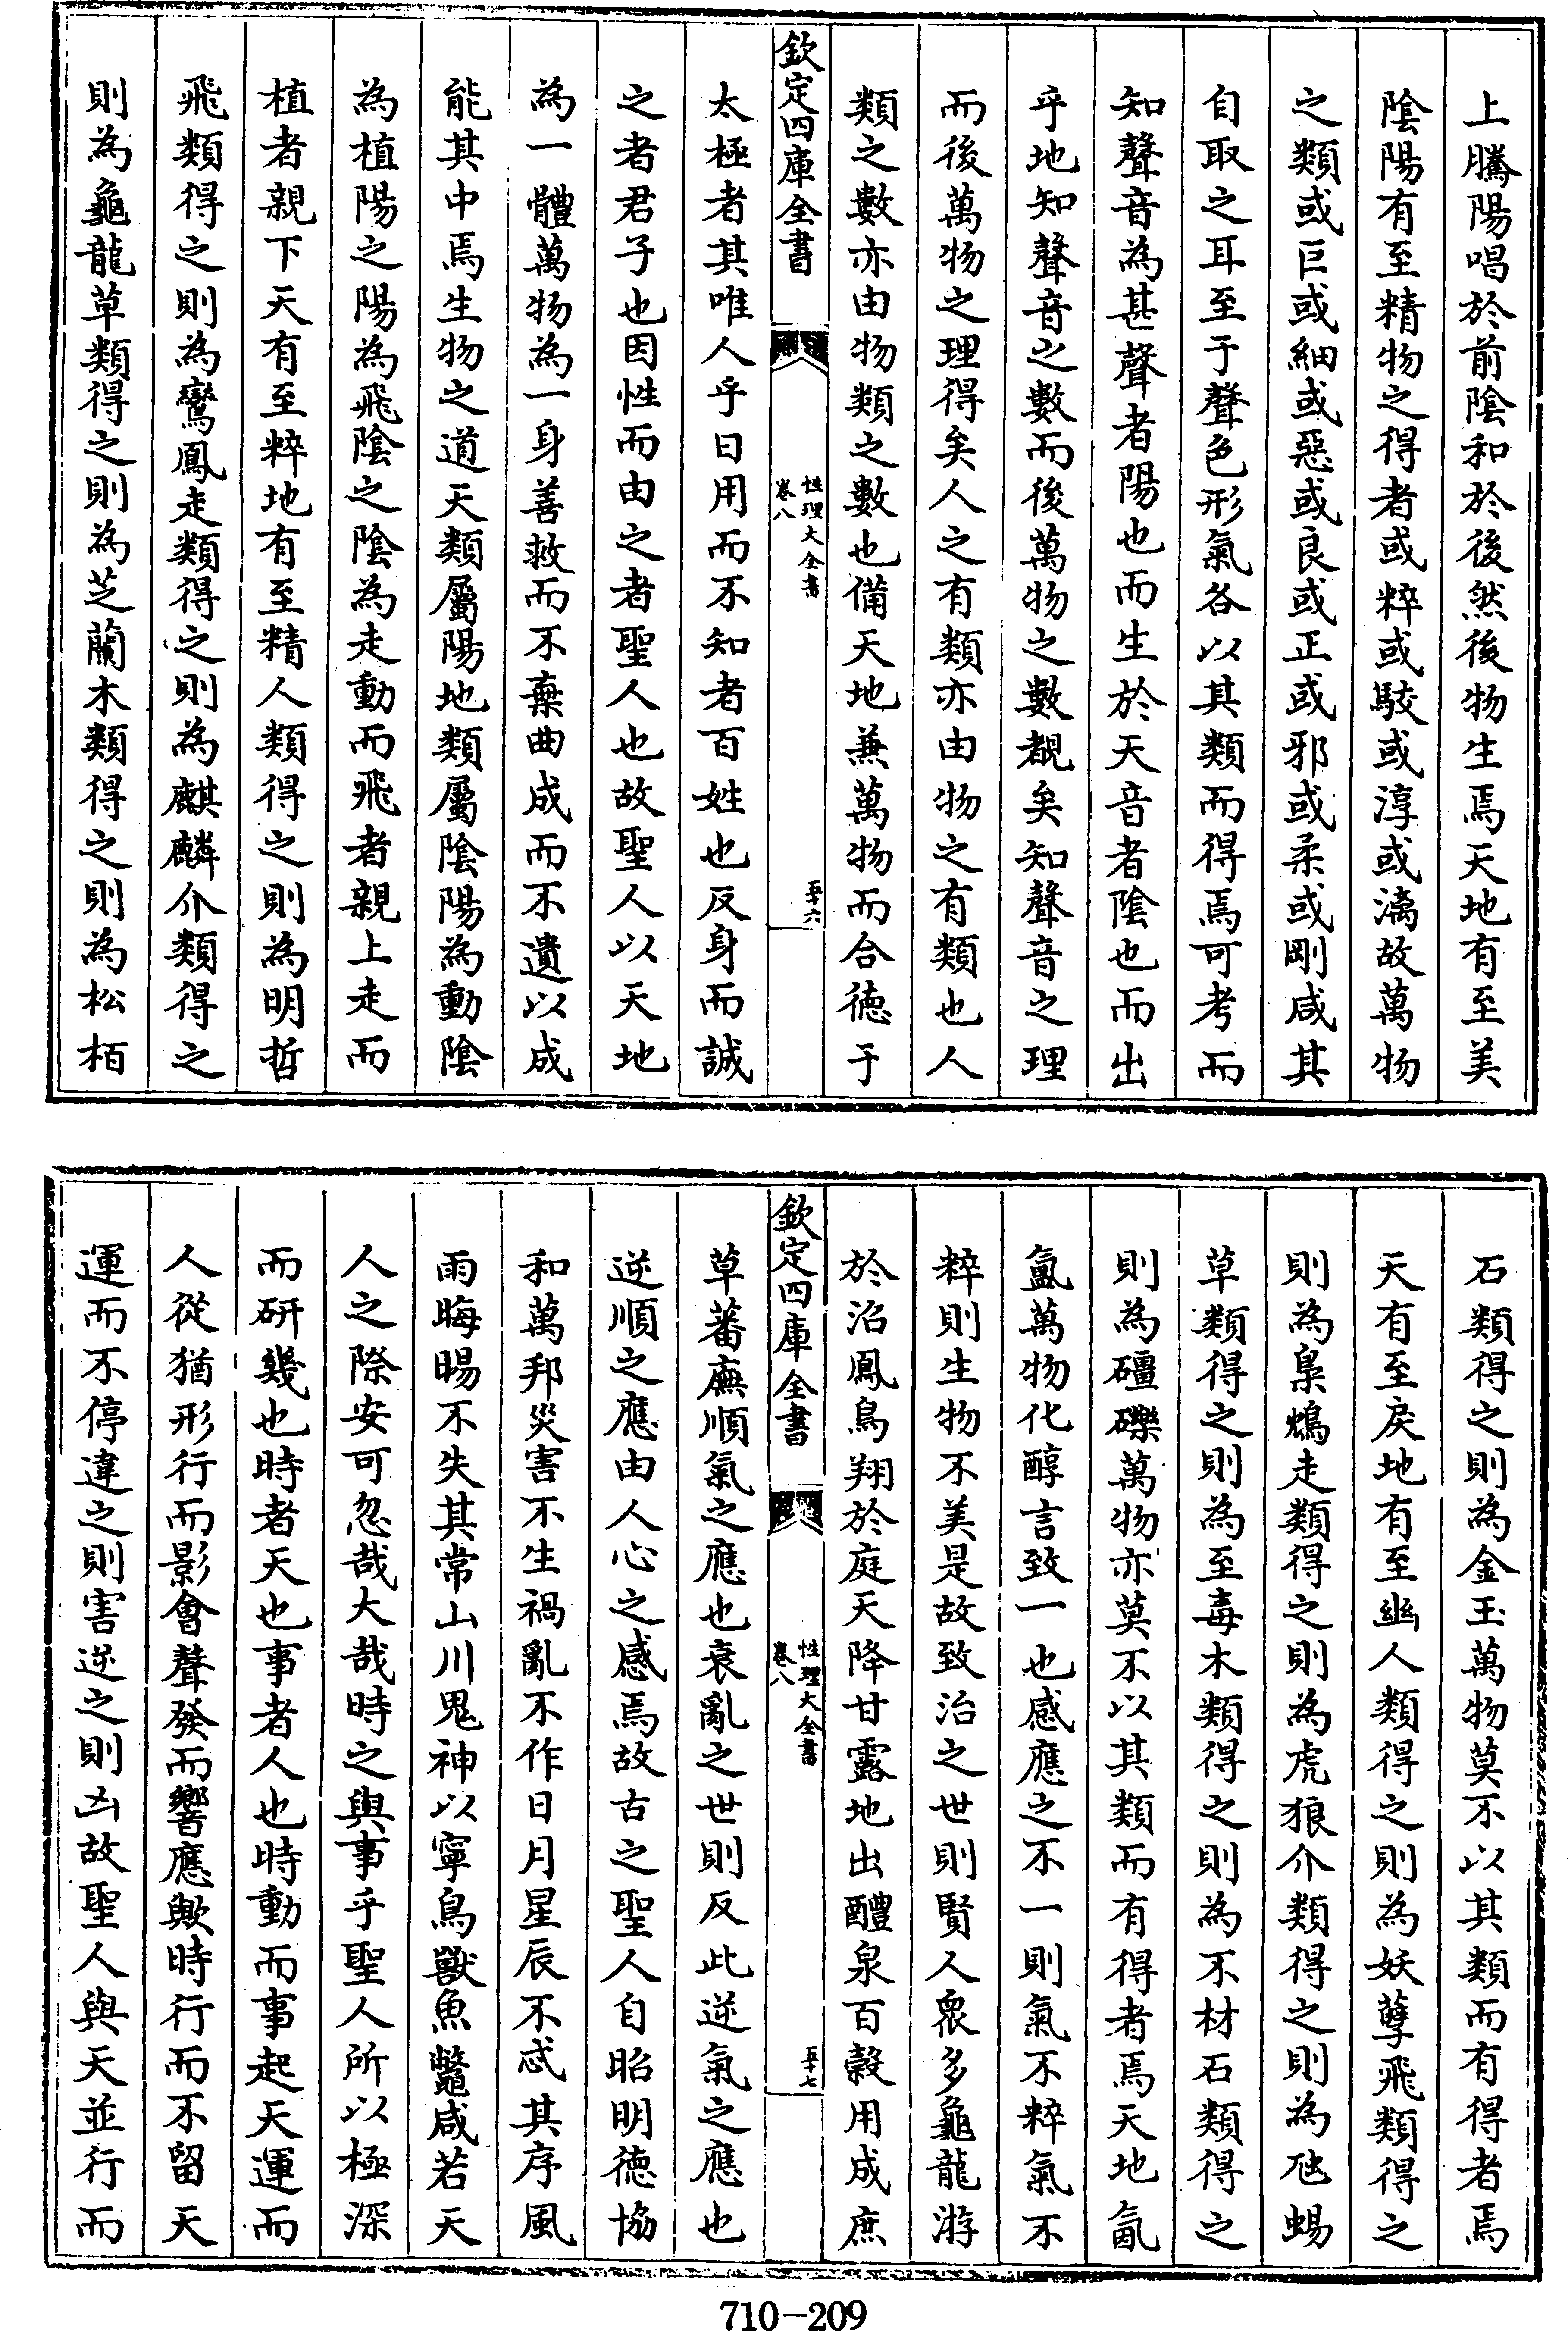 上騰陽唱於前陰和於後然後物生焉天地有至美
陰陽有至精物之得者或粹或駁或淳或漓故萬物
之類或巨或細或惡或良或正或邪或柔或剛咸其
自取之耳至于聲色形氣各以其類而得焉可考而
知聲音為甚聲者陽也而生於天音者陰也而出
乎地知聲音之數而後萬物之數覩矣知聲音之理
而後萬物之理得矣人之有類亦由物之有類也人
類之數亦由物類之數也備天地兼萬物而合徳于
欽定四庫全書
性理大全書
卷八
五十六
太極者其唯人乎日用而不知者百姓也反身而誠
之者君子也因性而由之者聖人也故聖人以天地
為一體萬物為一身善救而不棄曲成而不遺以成
能其中焉生物之道天類屬陽地類屬陰陽為動陰
為植陽之陽為飛陰之陰為走動而飛者親上走而
植者親下天有至粹地有至精人類得之則為明哲
飛類得之則為鸞鳳走類得之則為麒麟介類得之
則為龜龍草類得之則為芝蘭木類得之則為松栢
石類得之則為金玉萬物莫不以其類而有得者焉
天有至戾地有至幽人類得之則為妖孽飛類得之
則為梟鴆走類得之則為虎狼介類得之則為虺蜴
草類得之則為至毒木類得之則為不材石類得之
則為礓礫萬物亦莫不以其類而有得者焉天地氤
氳萬物化醇言致一也感應之不一則氣不粹氣不
粹則生物不美是故致治之世則賢人衆多龜龍游
於沼鳳鳥翔於庭天降甘露地出醴泉百穀用成庶
欽定四庫全書
性理大全書
卷八
五十七
草蕃廡順氣之應也衰亂之世則反此逆氣之應也
逆順之應由人心之感焉故古之聖人自昭明徳協
和萬邦災害不生禍亂不作日月星辰不忒其序風
雨晦暘不失其常山川鬼神以寧鳥獸魚鼈咸若天
人之際安可忽哉大哉時之與事乎聖人所以極深
而研幾也時者天也事者人也時動而事起天運而
人從猶形行而影會聲發而響應歟時行而不留天
運而不停違之則害逆之則凶故聖人與天並行而
710-209